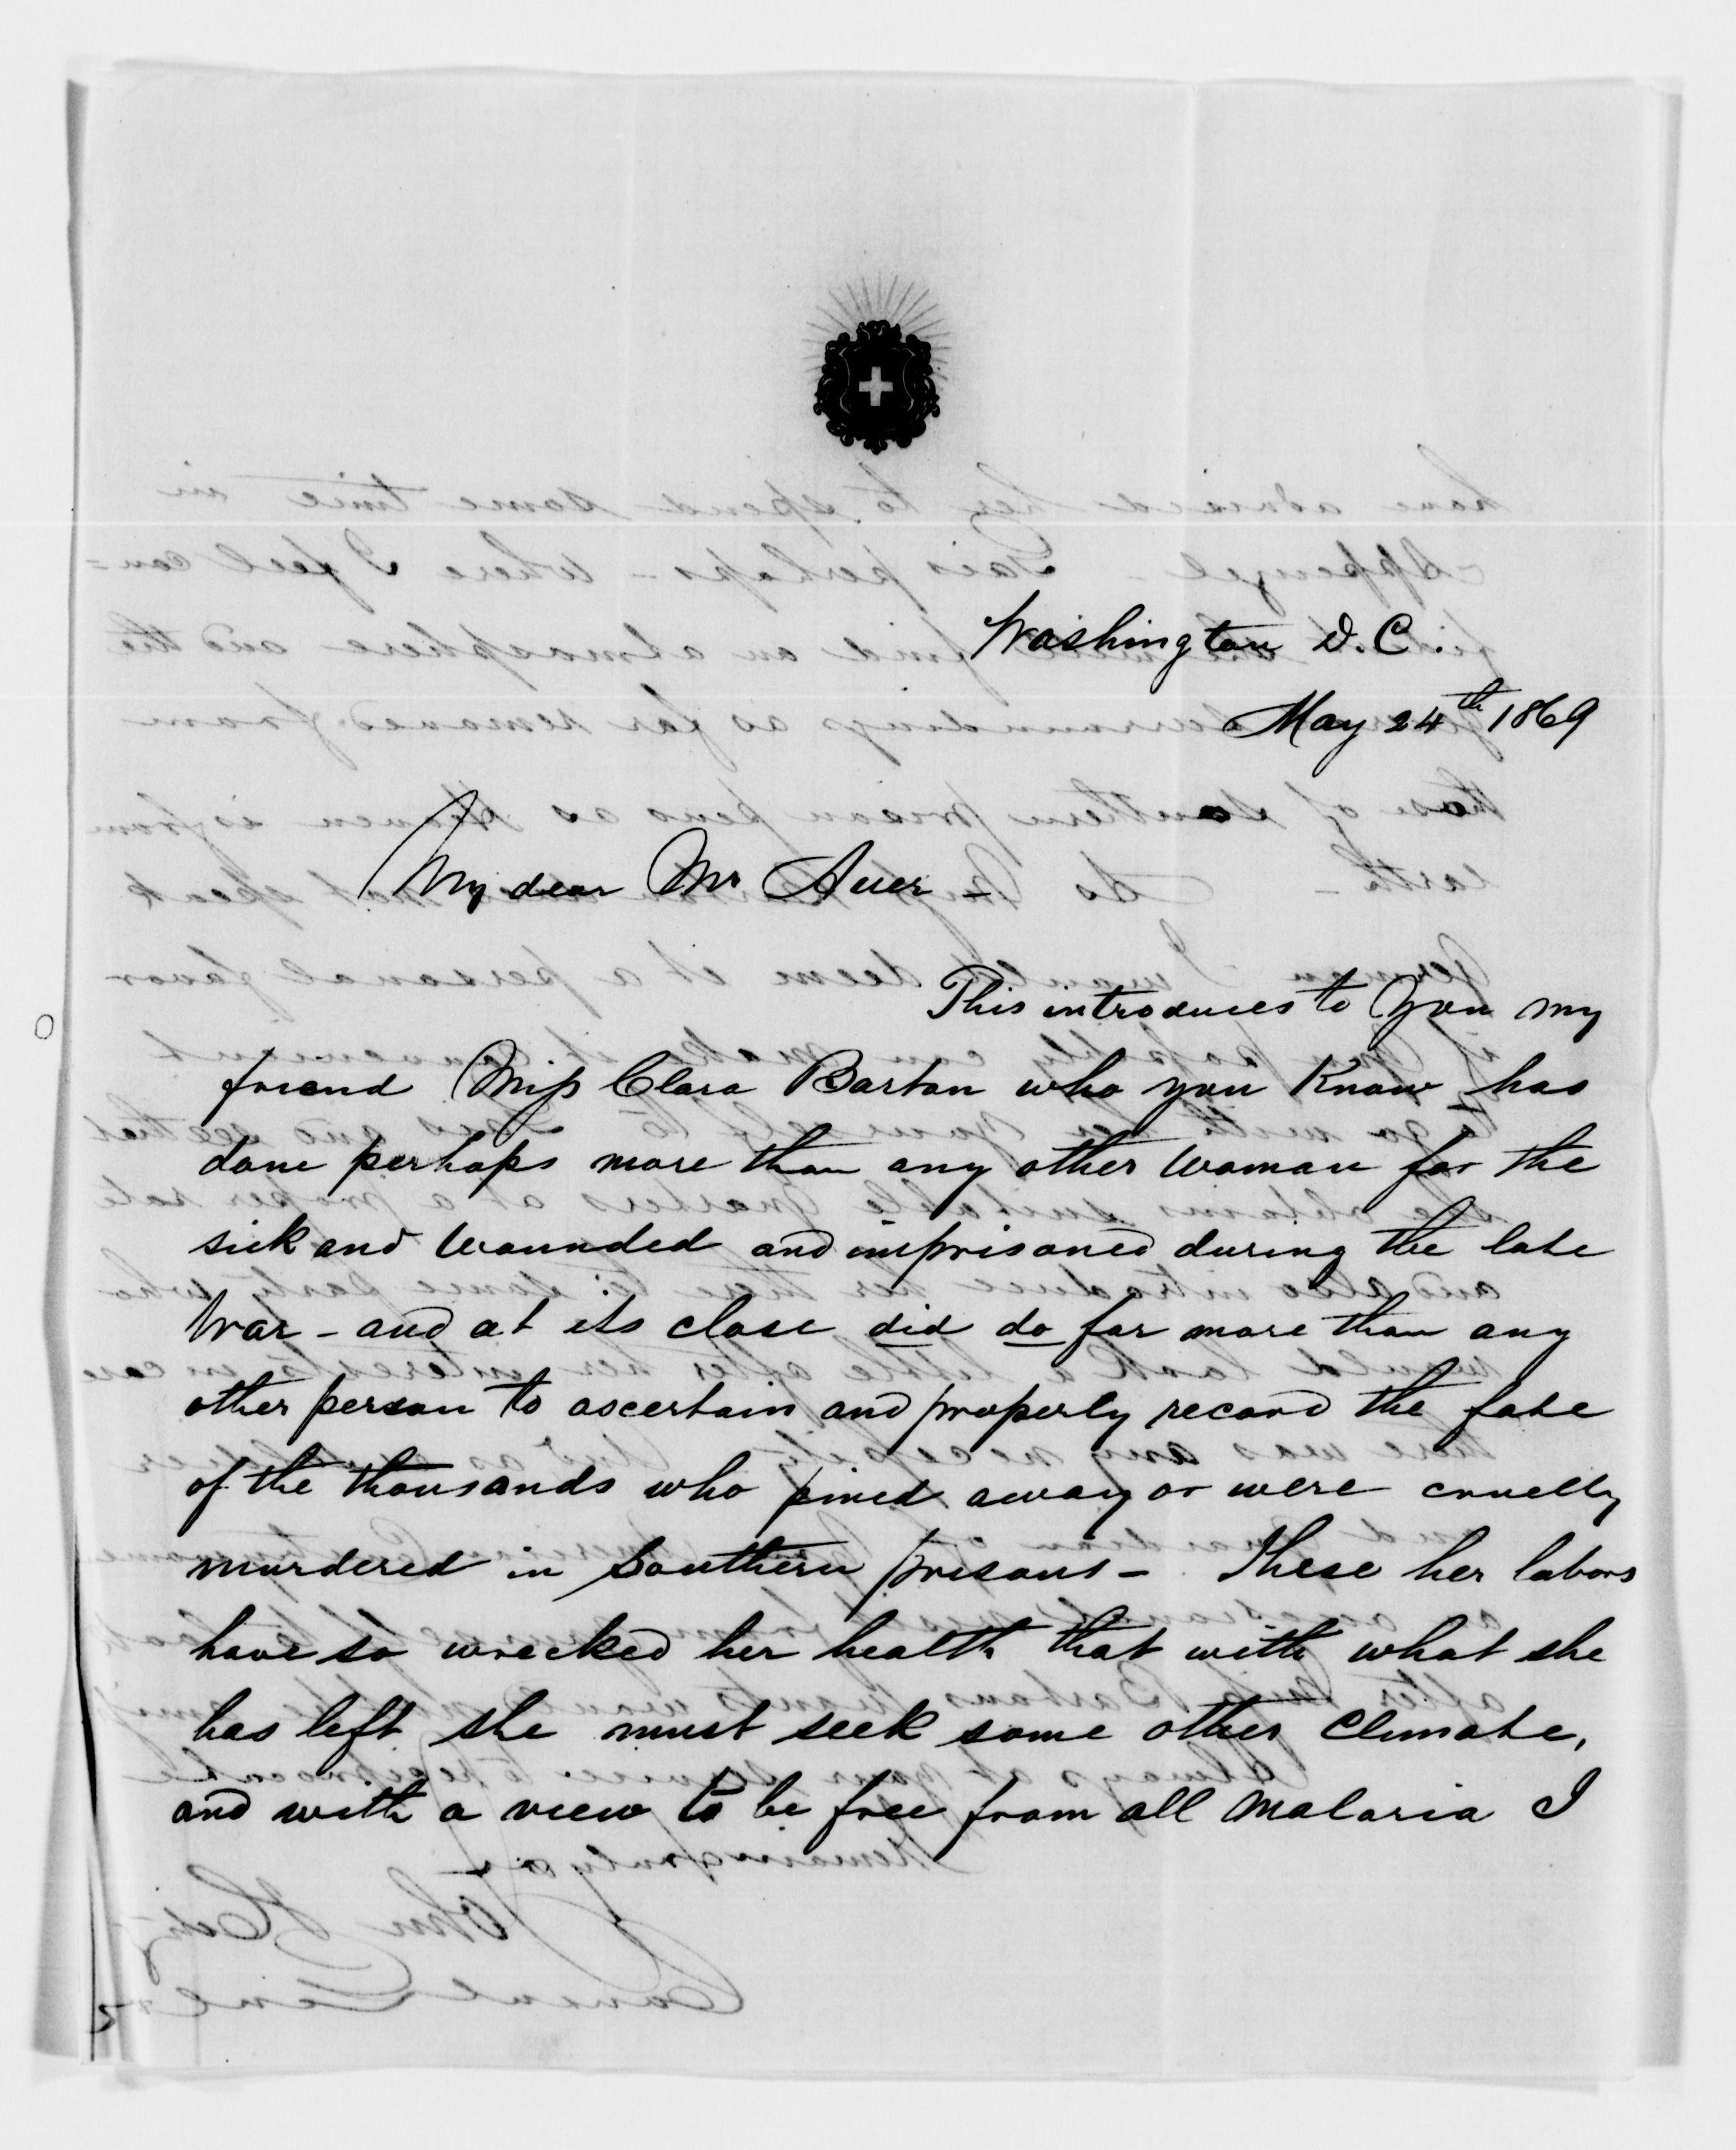 Washington D.C.
May 24th 1869
My dear Mr Auer -
This introduces to you my
friend Miss Clara Barton who you know has
done perhaps more than any other woman for the
sick and wounded and imprisoned during the late
War - and at its close did do far more than any
other person to ascertain and properly record the fate
of the thousands who pined away or were cruelly
murdered in Southern prisons - These her labors
have so wrecked her health that with what she
has left she must seek some other climate,
and with a view to be free from all malaria I